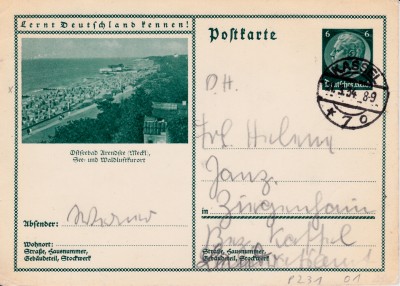 Lernt Deutschland kennen!
Ostseebad Arendsee (Meckl),
See- und Waldluftkurort
Absender: Werner
Wohnort:
Straße, Hausnummer,
Gebäudeteil, Stockwerk
Postkarte
6 6
Deutsches Reich
KASSEL
34 8-9
* 7 o
D.H.
Frl Helene
Janz.
in Ziegenhain
Bez. Kassel
Straße, Hausnummer,
Gebäudeteil, Stockwerk
P231 01